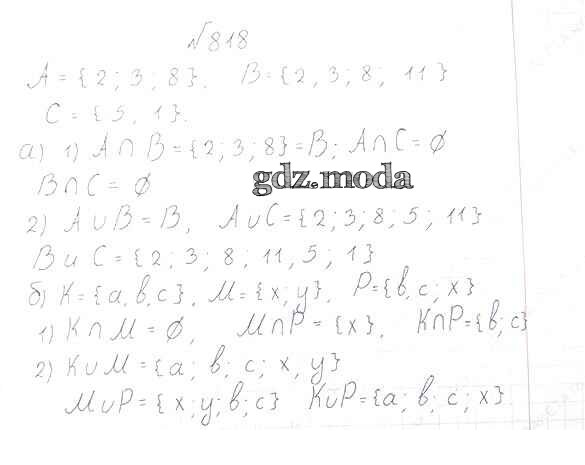 №818
A = {2; 3; 8}, B = {2, 3; 8, 11}
C = {5, 1}.
а) 1) A∩B = {2; 3; 8} = B; A∩C = ∅
B∩C = ∅
gdz.moda
2) A∪B = B, A∪C = {2; 3; 8; 5; 11}
B и C = {2; 3; 8; 11, 5; 1}
б) K = {a, b, c}, M = {x; y}, P = {b, c; x}
1) K∩M = ∅, M∩P = {x}, K∩P = {b; c}
2) K∪M = {a; b; c; x, y}
M∪P = {x; y; b; c} K∪P = {a; b; c; x}